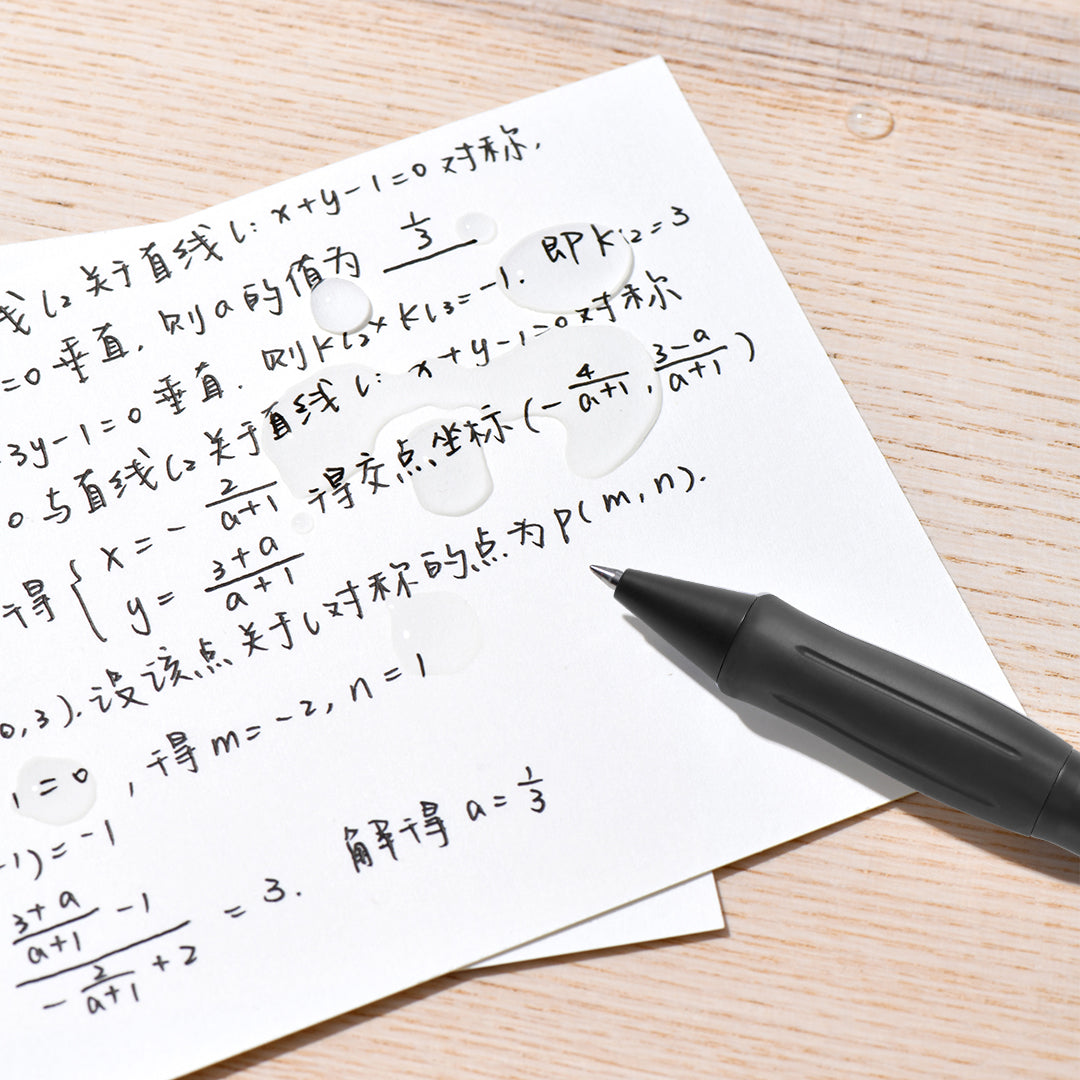 线l₂关于直线l: x+y-1=0对称,
=0垂直, 则a的值为 1/3
3y-1=0垂直. 则kl₂×kl₃=-1. 即kl₂=3
0与直线l₂关于直线l: x+y-1=0对称
得{x=-2/(a+1) y=(3+a)/(a+1) 得交点坐标(-4/(a+1), (3-a)/(a+1))
0,3).设该点关于l对称的点为P(m,n).
1=0, 得m=-2, n=1
-1)=-1
((3+a)/(a+1) -1)/(-2/(a+1) +2) = 3. 解得a=1/3